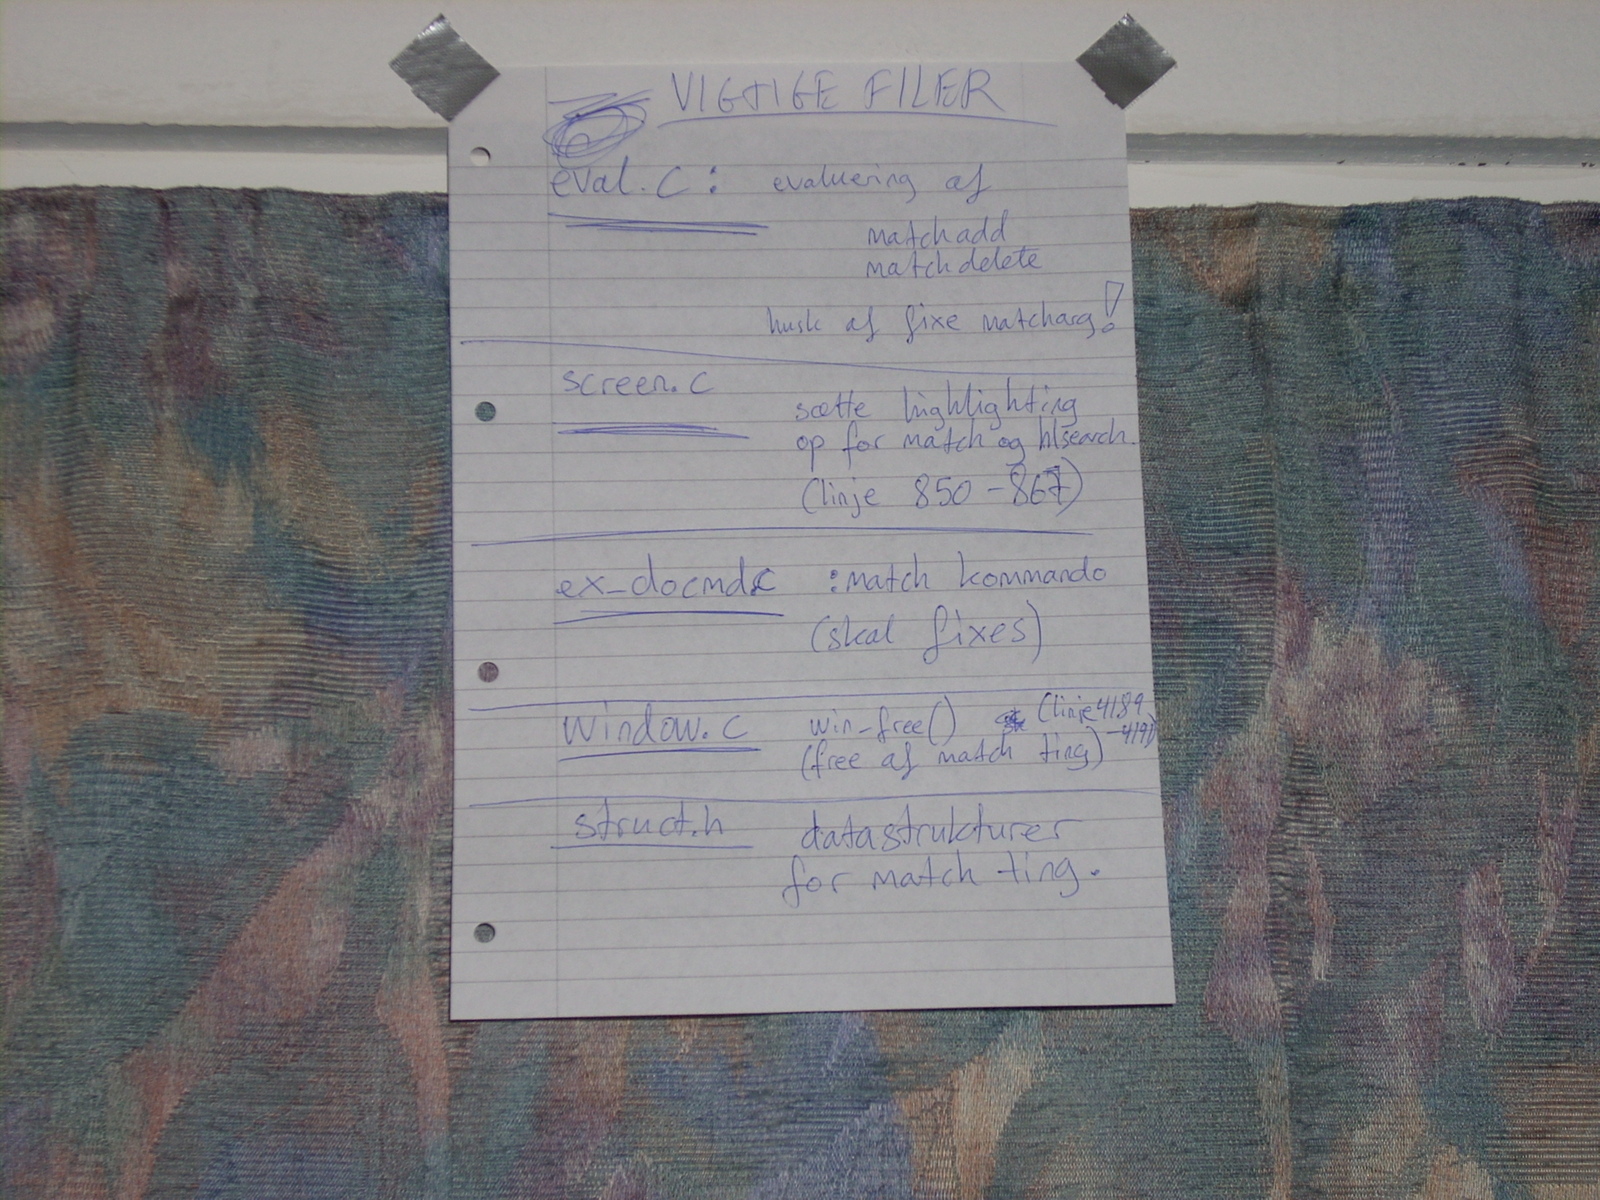 VIGTIGE FILER
eval.c : evaluering af
matchadd
matchdelete
husk at fixe matcharg!
screen.c sætte highlighting
op for match og hlsearch.
(linje 850-867)
ex_docmd.c :match kommando
(skal fixes)
window.c win_free() (linje 4189
(free af match ting) -4191)
struct.h datastrukturer
for match ting.